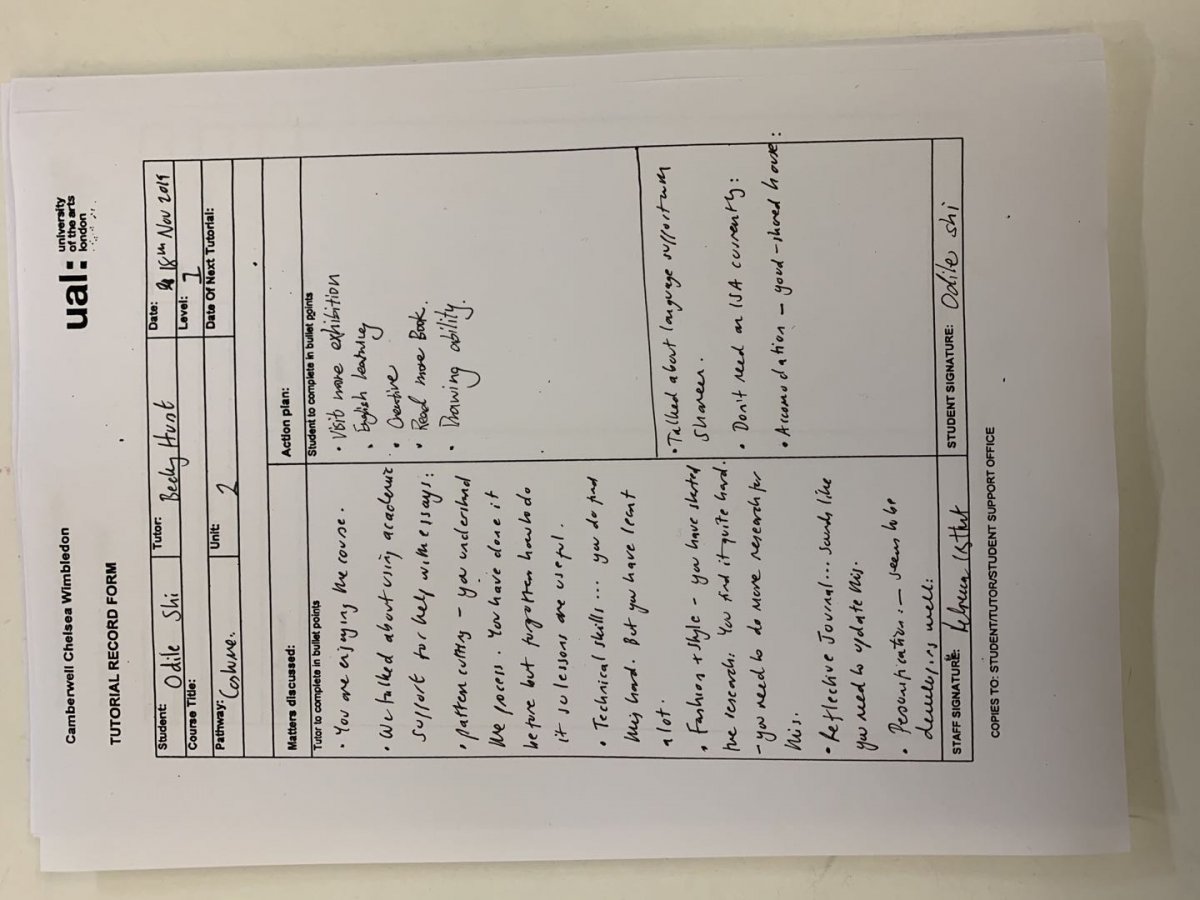 Camberwell Chelsea Wimbledon
ual: university
of the arts
london
TUTORIAL RECORD FORM
Student: Odile Shi Tutor: Becky Hunt Date: 18th Nov 2019
Course Title: Level: 1
Pathway: Costume. Unit: 2 Date Of Next Tutorial:
Matters discussed:
Tutor to complete in bullet points
• You are enjoying the course.
• We talked about using academic
support for help with essays:
• pattern cutting - you understand
the process. You have done it
before but forgotten how to do
it so lessons are useful.
• Technical skills... you do find
this hard. But you have learnt
a lot.
• Fashion + Style - you have started
the research. You find it quite hard.
- you need to do more research for
this.
• Reflective Journal... sounds like
you need to update this.
• Personification. - seems to be
developing well:
Action plan:
Student to complete in bullet points
• Visit more exhibition
• English learning
• Creative
• Read more Book.
• Drawing ability.
• Talked about language support with
Shareen.
• Don't need an ISA currently:
• Accomodation - good - shared house:
STAFF SIGNATURE: Rebecca Hunt
STUDENT SIGNATURE: Odile Shi
COPIES TO: STUDENT/TUTOR/STUDENT SUPPORT OFFICE